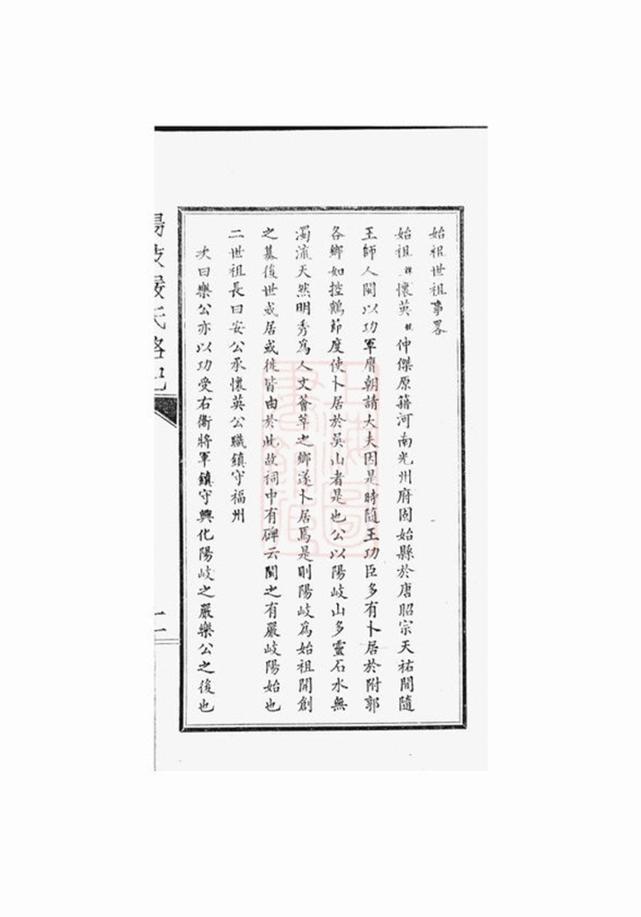 始祖世祖事畧
始祖諱懷英號仲傑原籍河南光州府固始縣於唐昭宗天祐間隨
王師人閩以功軍膺朝請大夫因是時隨王功臣多有卜居於附郭
各鄉如控鶴節度使卜居於吳山者是也公以陽岐山多靈石水無
濁流天然明秀為人文薈萃之鄉遂卜居焉是則陽岐為始祖開創
之基後世或居或徙皆由於此故祠中有碑云閩之有嚴岐陽始也
二世祖長曰安公承懷英公職鎮守福州
次曰樂公亦以功受右衛將軍鎮守興化陽岐之嚴樂公之後也
陽岐嚴氏略記